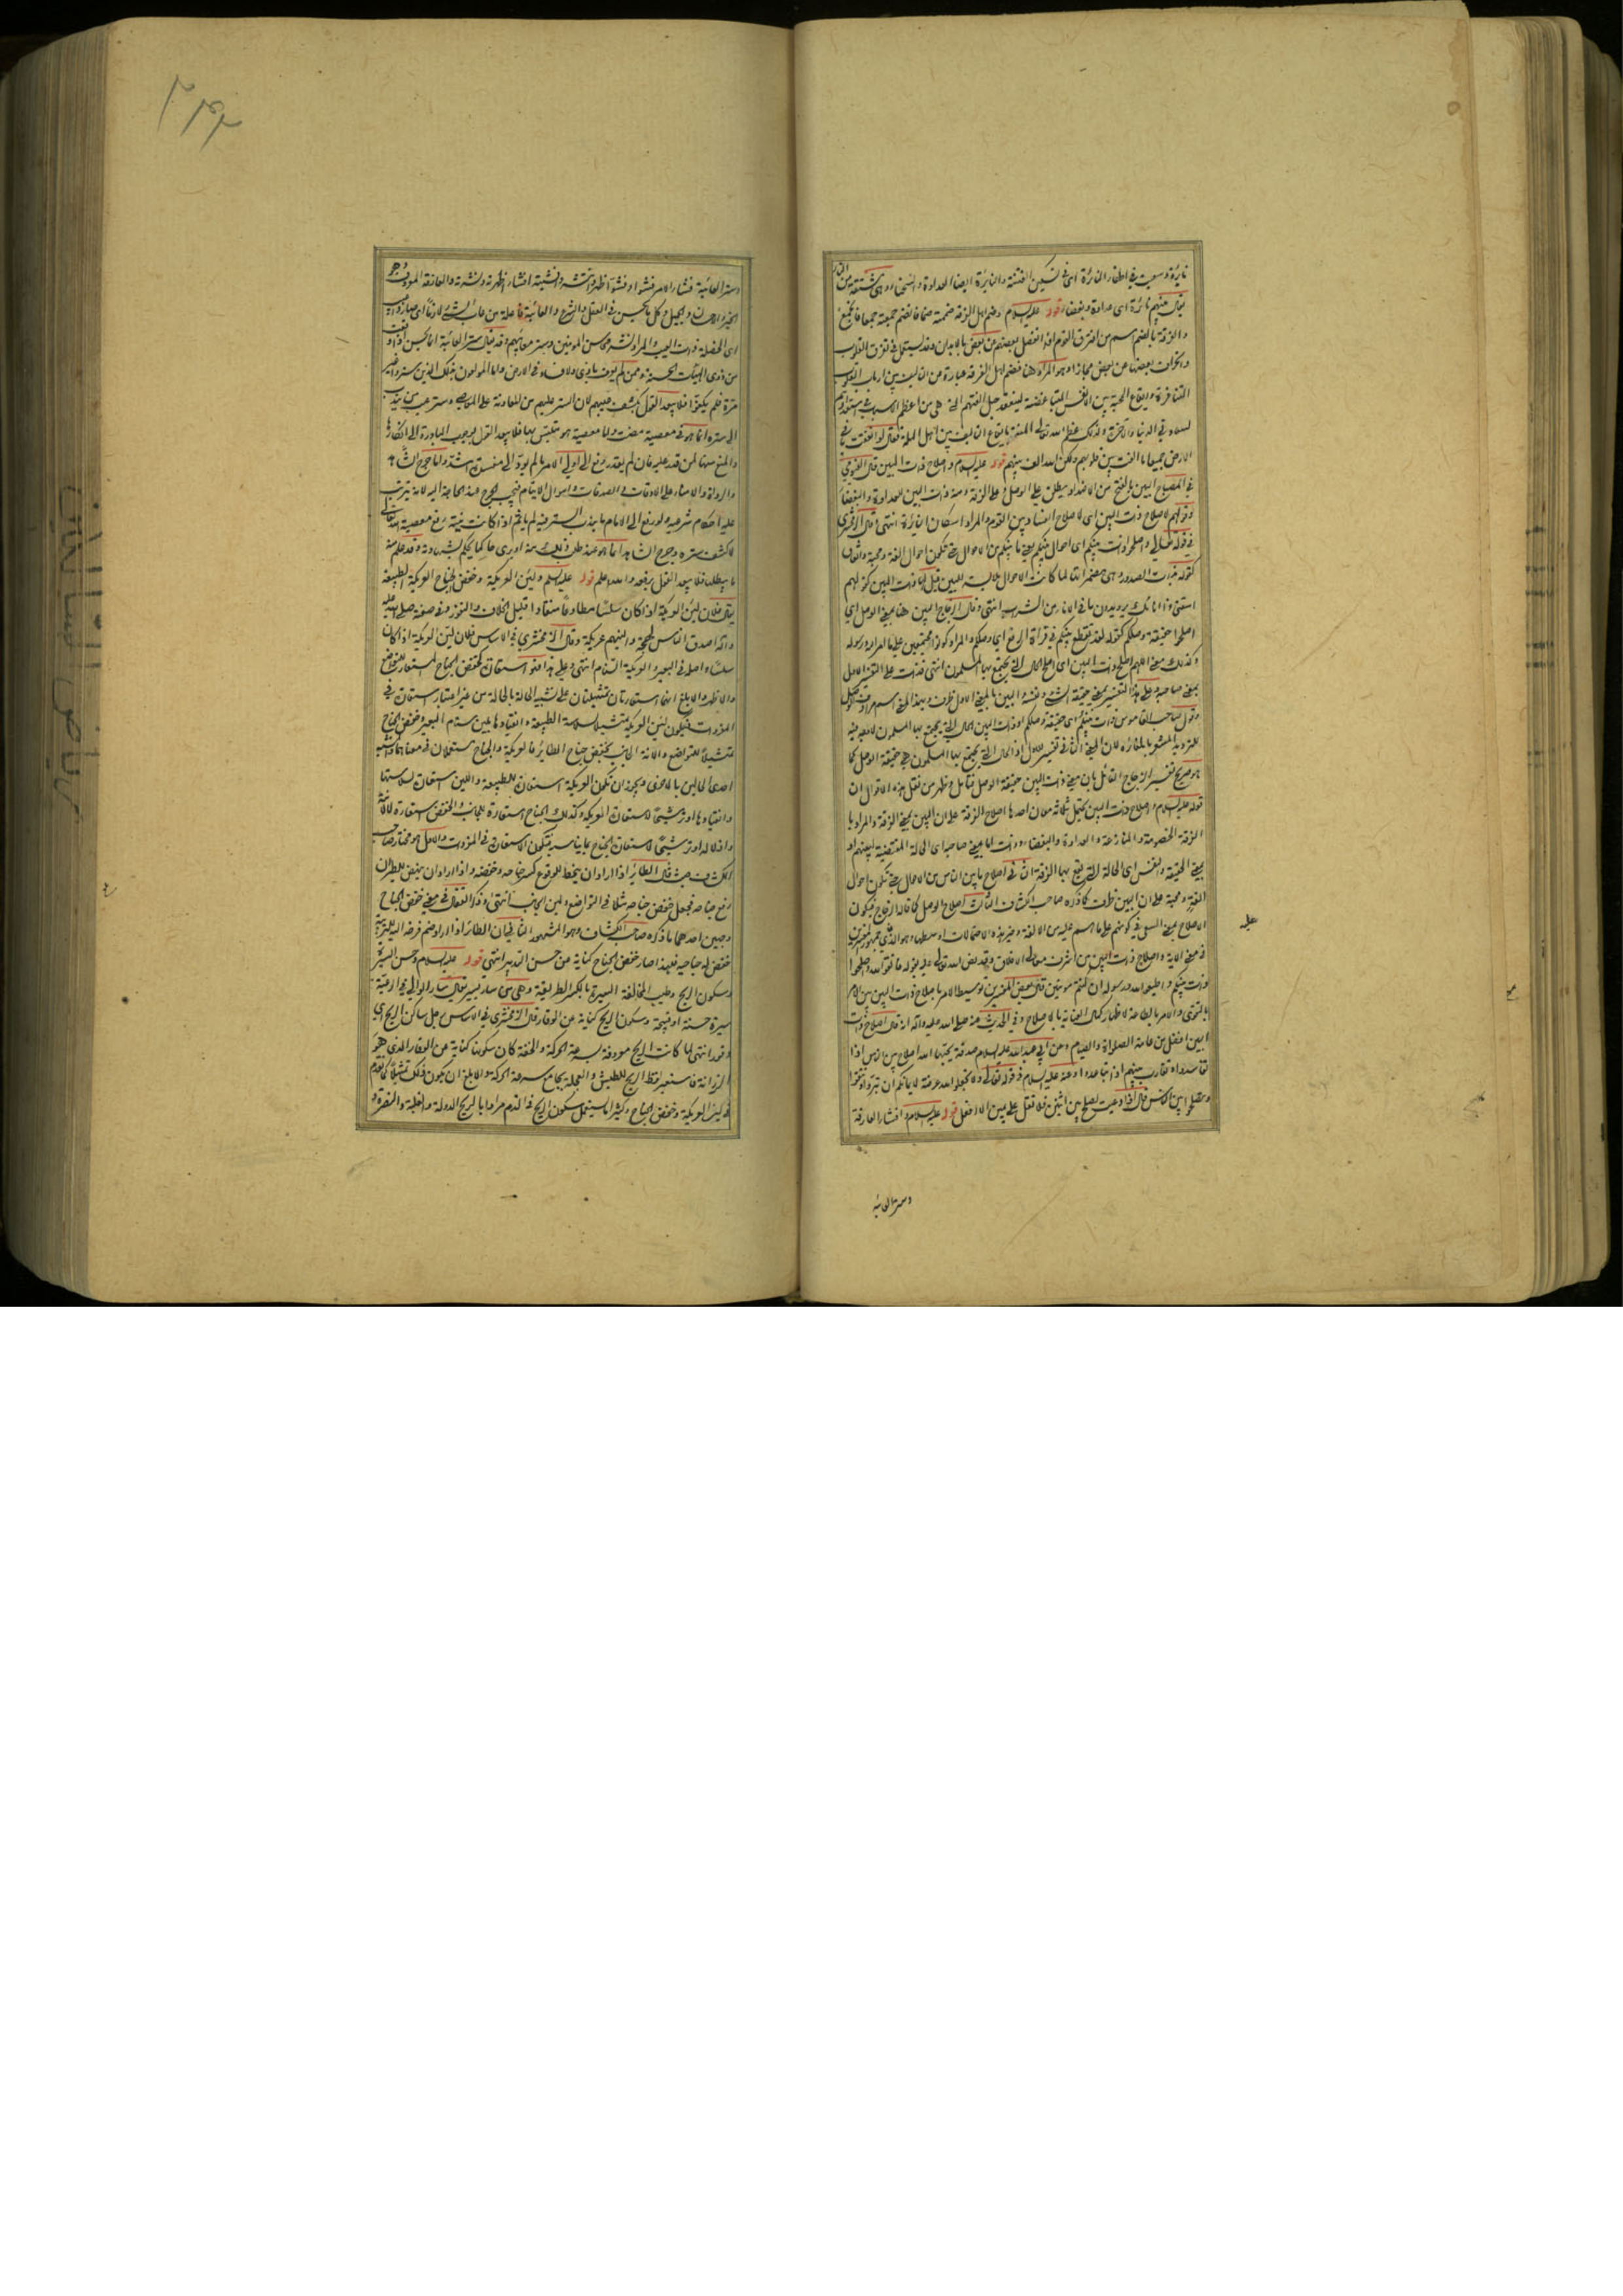 نايرة وسعيت في اطفاء النائرة اى في تسكين الفتنة والنائرة ايضا العداوة والشحناء وهى مشتقة من النار
يقال بينهم نائرة اى عداوة وبغضاء قوله عليه السلام وضم اهل الفرقة ضممته ضما فانضم جمعته جمعا فاجتمع
والفرقة بالضم اسم من افترق القوم اذا انفصل بعضهم من بعض بالابدان وقد يستعمل في تفرق القلوب
عن بعض مجازا وهو المراد هنا فضم اهل الفرقة عبارة عن التاليف بين ارباب القلوب
المتنافرة وايقاع المحبة بين الانفس المتباغضة لينعقد حبل الفتهم التى هى من اعظم الاسباب في
في الدنيا والاخرة ولذلك عظم الله تعالى المنة بايقاع التاليف بين اهل الملة فقال لو انفقت ما في
الارض جميعا ما الفت بين قلوبهم ولكن الله الف بينهم قوله عليه السلام واصلاح ذات البين قال الفيومي
في المصباح البين بالفتح من الاضداد يطلق على الوصل وعلى الفرقة ومنه ذات البين للعداوة والبغضاء
وقولهم لاصلاح ذات البين اى لاصلاح الفساد بين القوم والمراد اسكان النائرة انتهى وقال الزمخشرى
في قوله تعالى واصلحوا ذات بينكم اى احوال بينكم يعنى ما بينكم من الاحوال حتى تكون احوال الفة ومحبة واتفاق
كقوله بذات الصدور وهى مضمراتها لما كانت الاحوال ملابسة للبين قيل لها ذات البين كقولهم
اسقنى ذا انائك يريدون ما في الاناء من الشراب انتهى وقال الزجاج البين هنا بمعنى الوصل اى
اصلحوا حقيقة وصلكم كقوله لقد تقطع بينكم في قراة الرفع اى وصلكم والمراد كونوا مجتمعين على ما امر الله ورسوله
وكذلك معنى اللهم اصلح ذات البين اى اصلح الحال التى يجتمع بها المسلمون انتهى فذات على التفسير الاول
بمعنى صاحبة وعلى هذا التفسير بمعنى حقيقة الشىء ونفسه والبين بالمعنى الاول ظرف وبهذا المعنى اسم مرادف للوصل
وقول صاحب القاموس ذات بينكم اى حقيقة وصلكم او ذات البين الحال التى يجتمع بها المسلمون
المعنى الثانى تفسير للاول اذ الحال التى يجتمع بها المسلمون هى حقيقة الوصل كما
هو صريح تفسير الزجاج القائل بان معنى ذات البين حقيقة الوصل فتامل وظهر من نقل هذه الاقوال ان
قوله عليه السلام واصلاح ذات البين يحتمل ثلاثة معان احدها اصلاح الفرقة على ان البين بمعنى الفرقة والمراد بها
الفرقة الخصومة والمنازعة والعداوة والبغضاء وذات اما بمعنى صاحبة اى الحالة المقتضية
بمعنى الحقيقة والنفس اى الحالة التى تقع بها الفرقة الثانى اصلاح ما بين الناس من الاحوال حتى تكون احوال
الفة ومحبة على ان البين ظرف كما ذكره صاحب الكشاف الثالث اصلاح الوصل كما قاله الزجاج فيكون
الاصلاح بمعنى السعى في كونهم على ما هم عليه من الالفة وخير هذه الاحتمالات اوسطها وهو الذى جمهور المفسرين
في معنى الاية واصلاح ذات البين من اشرف معالى الاخلاق وقد نص الله تعالى عليه بقوله فاتقوا الله واصلحوا
ذات بينكم واطيعوا الله ورسوله ان كنتم مؤمنين قال بعض المفسرين توسيط الامر باصلاح ذات البين بين الامر
بالتقوى والامر بالطاعة لاظهار كمال العناية بالاصلاح وفي الحديث عنه صلى الله عليه واله انه قال اصلاح ذات
البين افضل من عامة الصلوة والصيام وعن ابى عبد الله عليه السلام صدقة يحبها الله اصلاح بين الناس اذا
تفاسدوا وتقارب بينهم اذا تباعدوا وعنه عليه السلام في قوله تعالى ولا تجعلوا الله عرضة لايمانكم ان تبروا وتتقوا
وتصلحوا بين الناس قال اذا دعيت لصلح بين اثنين فلا تقل على يمين الا افعل قوله عليه السلام وافشاء العارفة
وستر العائبة
وستر العائبة فشا الامر فشوا وفشوا ظهر وانتشر وافشيته افشاء اظهرته ونشرته والعارفة المعروف وهو
الخير والاحسان والجميل وكل ما يحسن في العقل والشرع والعائبة فاعلة من عاب الشىء لازما اى صار ذا عيب
اى الخصلة ذات العيب والمراد نشر محاسن المومنين وستر معائبهم وقد يقال ستر العائبة انما يحسن اذا وقعت
من ذوى الهيئات الحسنة وممن لم يعرف باذى ولا فساد في الارض واما المولعون بذلك الذين ستروا غير
مرة فلم يكفوا فلا يبعد القول بكشف حالهم لان الستر عليهم من المعاونة على المعاصى وستر عيب من يندب
الى ستره انما هو في معصية مضت واما معصية هو متلبس بها فلا يبعد القول بوجوب المبادرة الى انكارها
والمنع منها لمن قدر عليه فان لم يقدر رفع الى والى الامر ما لم يؤد الى مفسدة اشد واما جرح الشاهد
والرواة والامناء على الاوقاف والصدقات واموال الايتام فيجب الجرح عند الحاجة اليه لانه يترتب
عليه احكام شرعية ولو رفع الى الامام ما يندب الستر فيه لم ياثم اذا كانت نيته رفع معصية الله تعالى
لا كشف ستره وجرح الشاهد انما هو عند طلب ذلك منه او يرى حاكما يحكم بشهادته وقد علم منه
ما يبطلها فلا يبعد القول برفعه والله اعلم قوله عليه السلم ولين العريكة وخفض الجناح العريكة الطبيعة
يقال فلان لين العريكة اذا كان سلسا مطاوعا منقادا قليل الخلاف والنفور وفي صفته صلى الله عليه
واله اصدق الناس لهجة والينهم عريكة وقال الزمخشرى في الاساس فلان لين العريكة اذا كان
سلسا واصله في البعير والعريكة السنام انتهى وعلى هذا فهو استعارة كخفض الجناح المستعار للتواضع
والاظهر والابلغ انهما استعارتان تمثيليتان على تشبيه الحالة بالحالة من غير اعتبار استعارة في
المفردات فيكون لين العريكة تمثيلا لسلاسة الطبيعة وانقيادها بلين سنام البعير وخفض الجناح
تمثيلا للتواضع والانة الجانب بخفض جناح الطائر فالعريكة والجناح مستعملان في معناهما وشبه
احدى الحالين بالاخرى ويجوز ان تكون العريكة استعارة للطبيعة واللين استعارة لسلاستها
وانقيادها او ترشيحا لاستعارة العريكة وكذلك الجناح استعارة للجانب والخفض استعارة لالانته
واذلاله او ترشيحا لاستعارة الجناح بما يناسبه فتكون الاستعارة في المفردات والاول هو مختار صاحب
الكشاف حيث قال الطائر اذا اراد ان ينحط للوقوع كسر جناحه وخفضه واذا اراد ان ينهض للطيران
رفع جناحه فجعل خفض جناحه مثلا في التواضع ولين الجانب انتهى وذكر القفال في معنى خفض الجناح
وجهين احدهما ما ذكره صاحب الكشاف وهو المشهور الثانى ان الطائر اذا اراد ضم فرخه اليه للتربية
خفض له جناحيه فلهذا صار خفض الجناح كناية عن حسن التدبير انتهى قوله عليه السلام وحسن السيرة
وسكون الريح وطيب المخالقة السيرة بالكسر الطريقة وهى من سار يسير يقال سار الوالى في الرعية
سيرة حسنة او قبيحة وسكون الريح كناية عن الوقار قال الزمخشرى في الاساس رجل ساكن الريح اى
وقور انتهى لما كانت الريح موصوفة بسرعة الحركة والخفة كان سكونها كناية عن الوقار الذى هو
الرزانة فاستعير لفظ الريح للطيش والعجلة بجامع سرعة الحركة والابلغ ان يكون ذلك تمثيلا كما تقدم
في لين العريكة وخفض الجناح وكثيرا ما يستعمل سكون الريح في الذم مرادا بالريح الدولة والغلبة والنصرة و